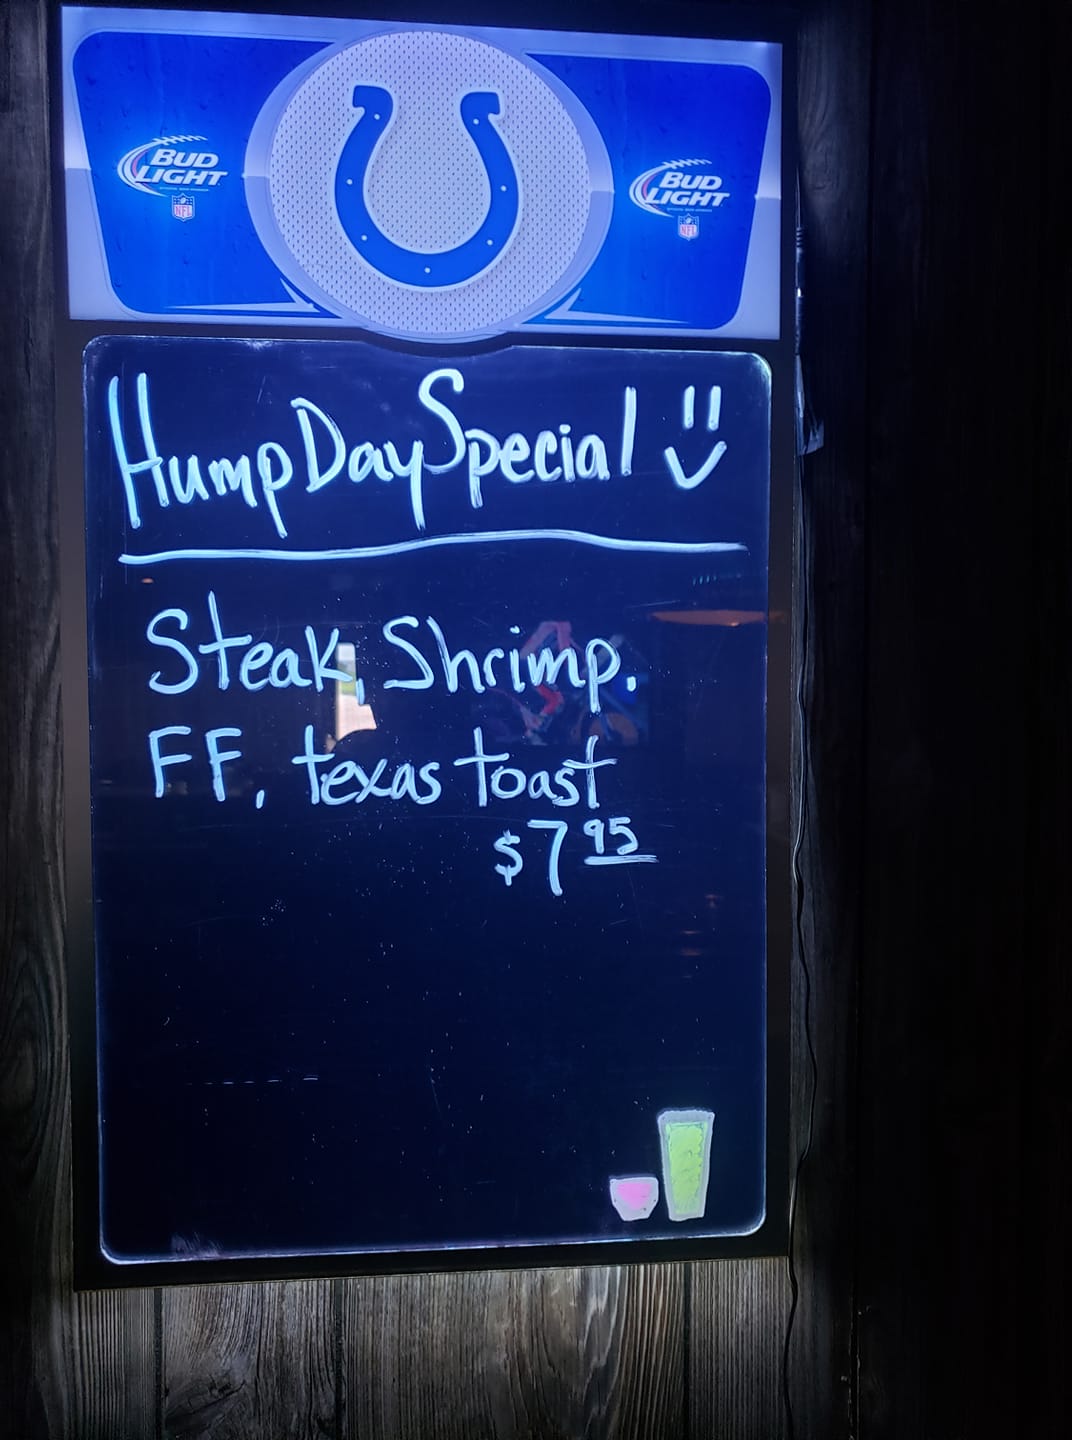 BUD
LIGHT
NFL
BUD
LIGHT
NFL
Hump Day Special
Steak, Shrimp.
FF, texas toast
$7 95